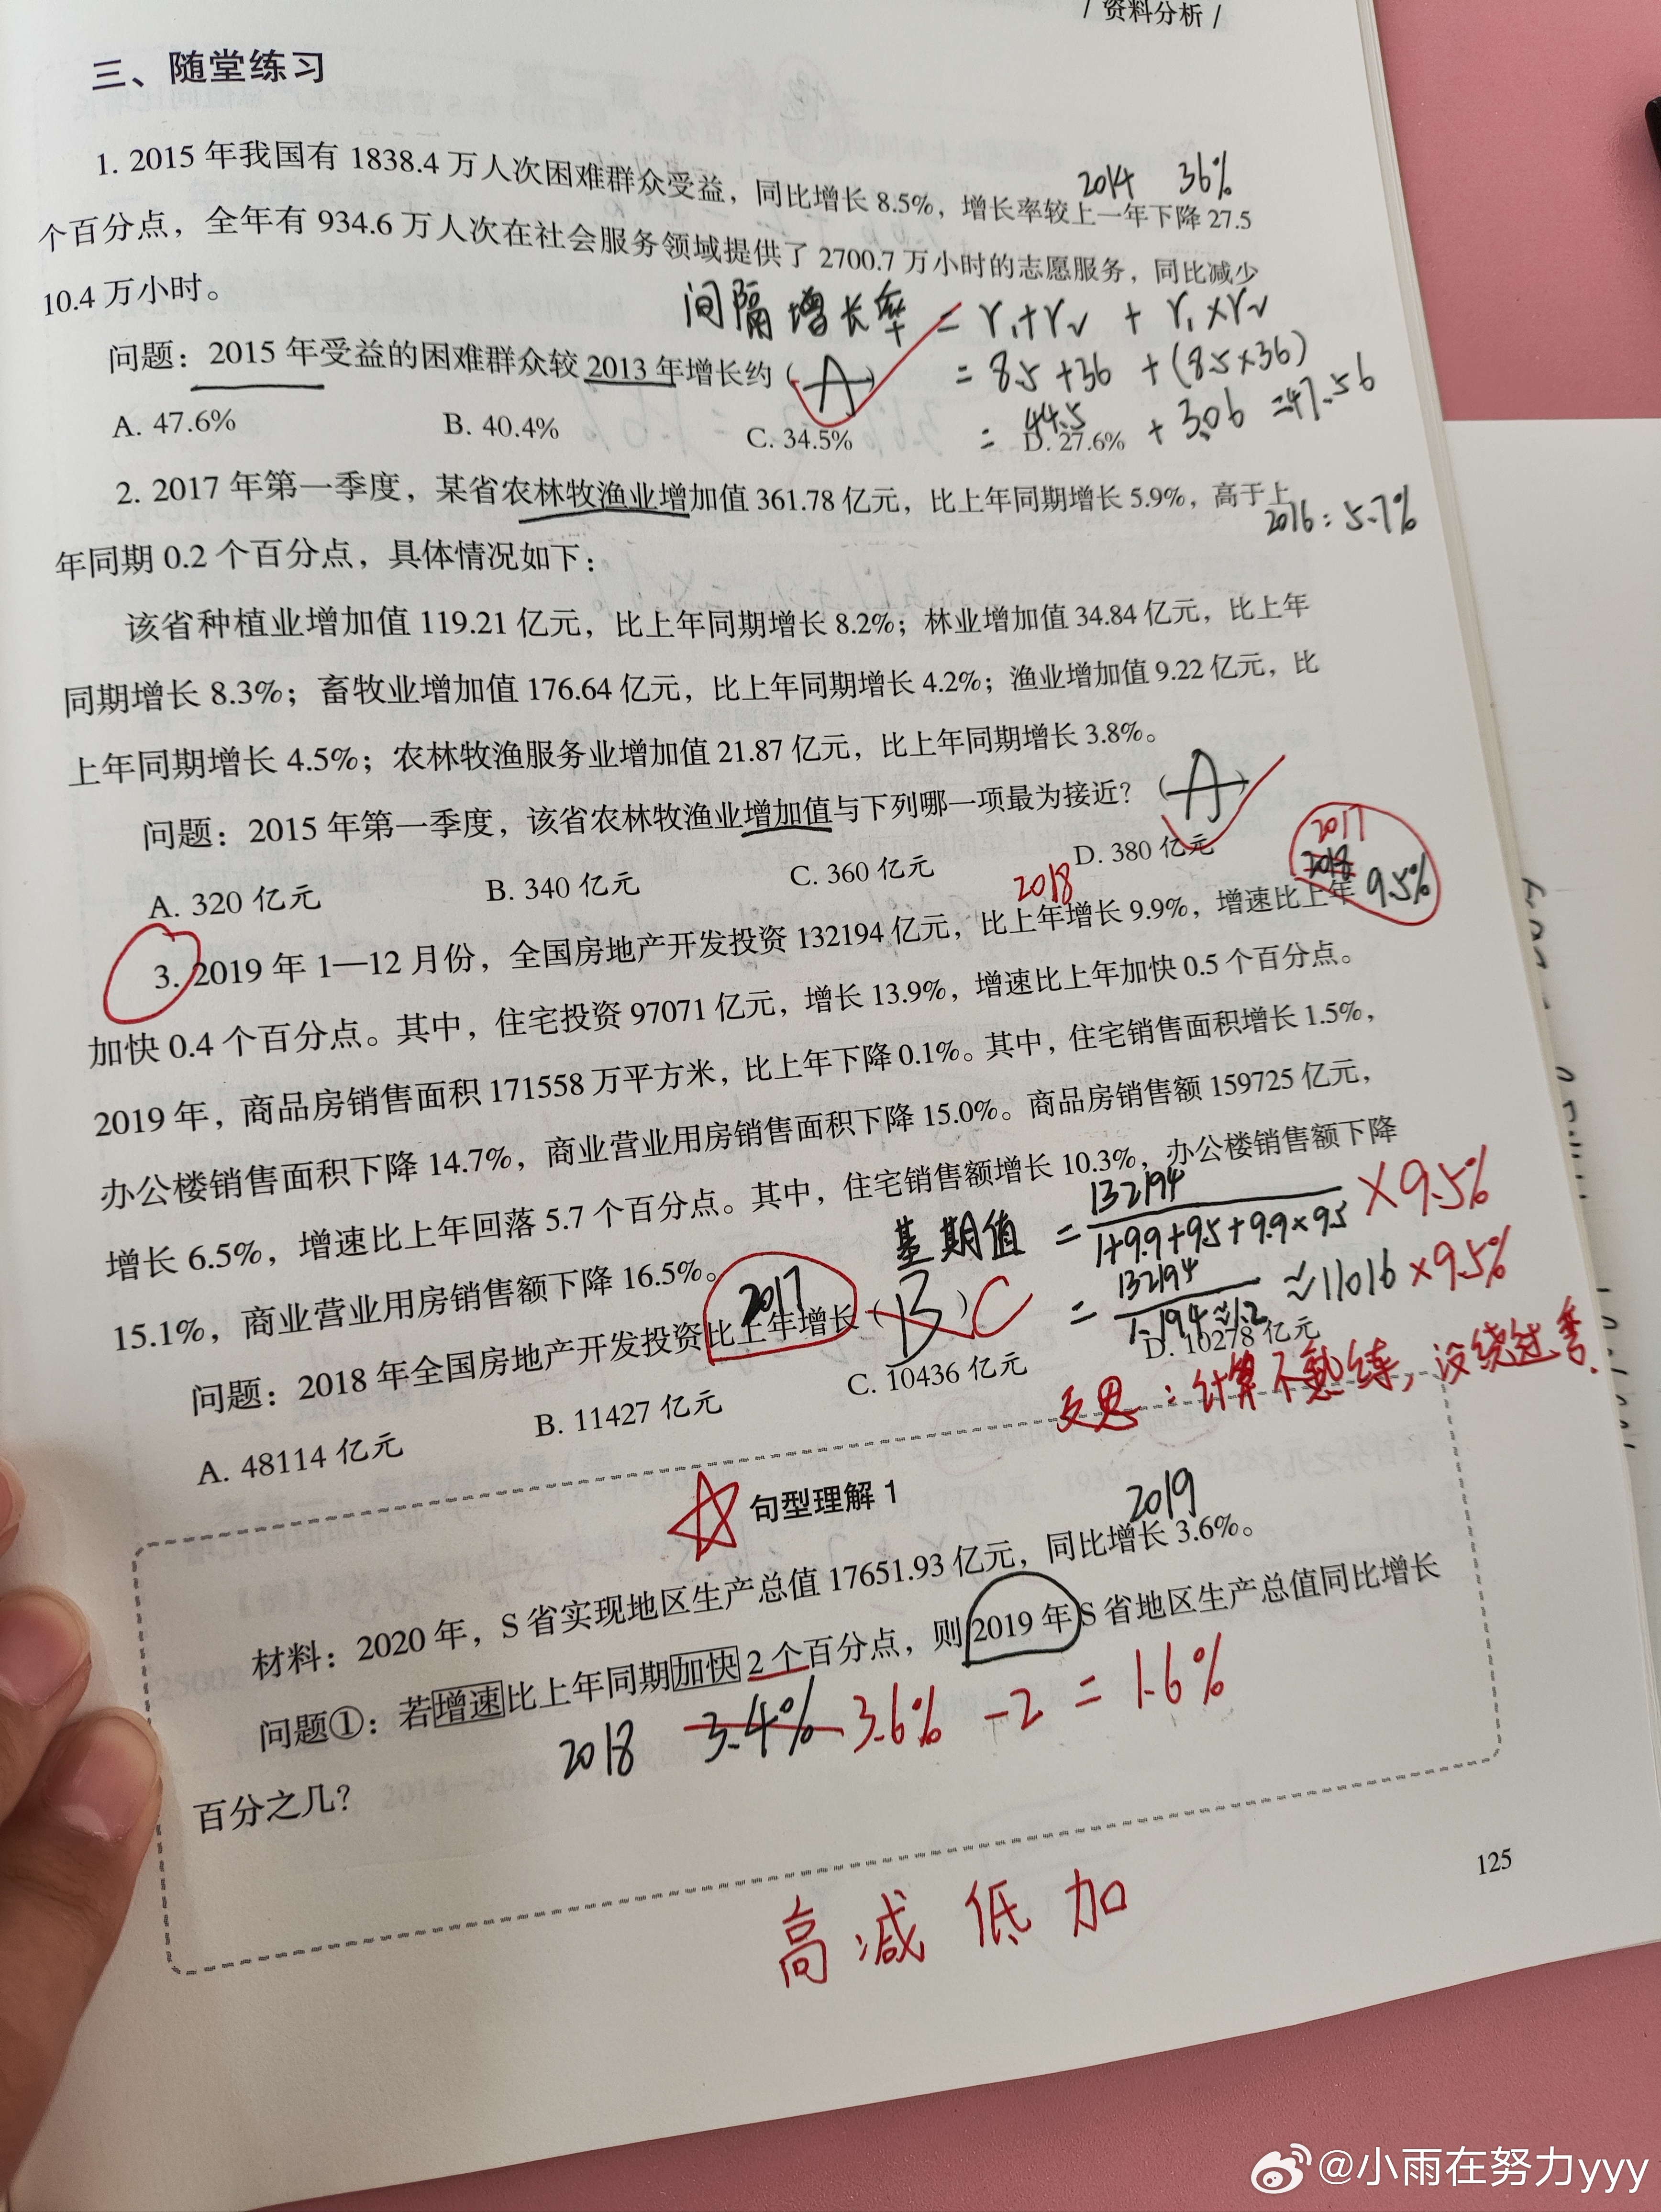 / 资料分析 /
三、随堂练习
1. 2015 年我国有 1838.4 万人次困难群众受益，同比增长 8.5%，增长率较上一年下降 27.5
2014 36%
个百分点，全年有 934.6 万人次在社会服务领域提供了 2700.7 万小时的志愿服务，同比减少
10.4 万小时。
间隔增长率 = r₁+r₂ + r₁×r₂
问题：2015 年受益的困难群众较 2013 年增长约（A）
= 8.5+36 +(8.5×36)
A. 47.6% B. 40.4% C. 34.5% D. 27.6%
= 44.5 + 3.06 =47.56
2. 2017 年第一季度，某省农林牧渔业增加值 361.78 亿元，比上年同期增长 5.9%，高于上
2016：5.7%
年同期 0.2 个百分点，具体情况如下：
该省种植业增加值 119.21 亿元，比上年同期增长 8.2%；林业增加值 34.84 亿元，比上年
同期增长 8.3%；畜牧业增加值 176.64 亿元，比上年同期增长 4.2%；渔业增加值 9.22 亿元，比
上年同期增长 4.5%；农林牧渔服务业增加值 21.87 亿元，比上年同期增长 3.8%。
问题：2015 年第一季度，该省农林牧渔业增加值与下列哪一项最为接近？（A）
A. 320 亿元 B. 340 亿元 C. 360 亿元 D. 380 亿元
2017
2018 2018 9.5%
3. 2019 年 1—12 月份，全国房地产开发投资 132194 亿元，比上年增长 9.9%，增速比上年
加快 0.4 个百分点。其中，住宅投资 97071 亿元，增长 13.9%，增速比上年加快 0.5 个百分点。
2019 年，商品房销售面积 171558 万平方米，比上年下降 0.1%。其中，住宅销售面积增长 1.5%，
办公楼销售面积下降 14.7%，商业营业用房销售面积下降 15.0%。商品房销售额 159725 亿元，
增长 6.5%，增速比上年回落 5.7 个百分点。其中，住宅销售额增长 10.3%，办公楼销售额下降
15.1%，商业营业用房销售额下降 16.5%。
基期值 = 132194/1+9.9+9.5+9.9×9.5 ×9.5%
= 132194/1.194≈1.2 ≈11016 ×9.5%
2017
问题：2018 年全国房地产开发投资比上年增长（B）C
A. 48114 亿元 B. 11427 亿元 C. 10436 亿元 D. 10278 亿元
反思：计算不熟练，没绕过去.
句型理解 1
2019
材料：2020 年，S 省实现地区生产总值 17651.93 亿元，同比增长 3.6%。
问题①：若增速比上年同期加快 2 个百分点，则 2019 年 S 省地区生产总值同比增长
2018 3.4% 3.6% -2 = 1.6%
百分之几？
125
高减低加
@小雨在努力yyy